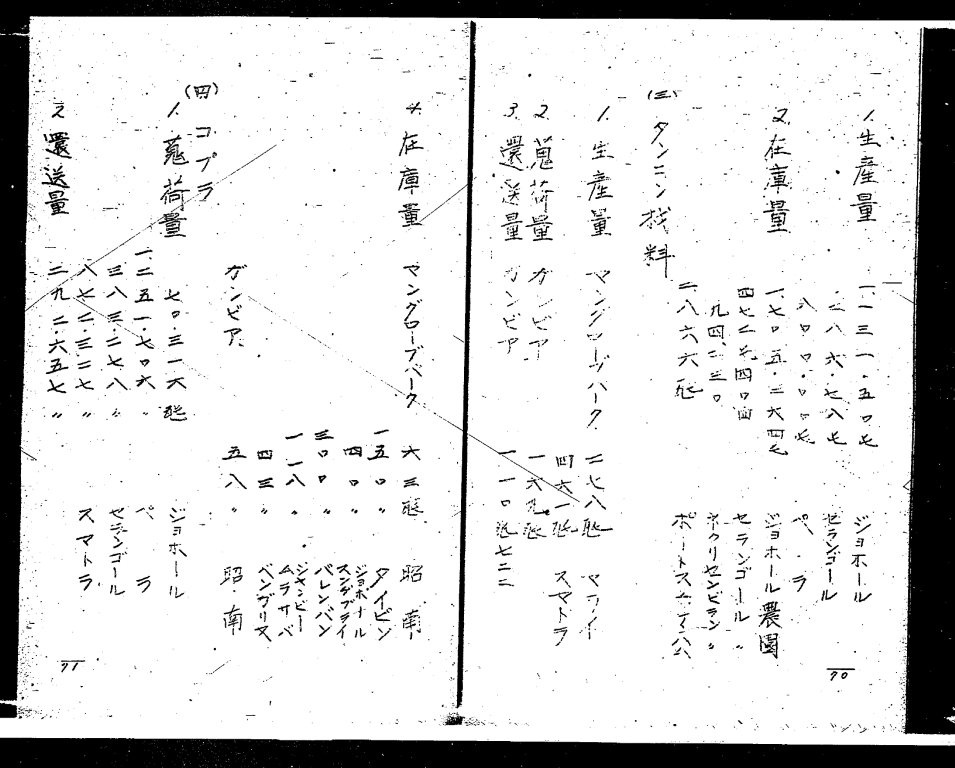 1. 生産量 一、一三一・五〇屯 ジョホール
二八六・七八屯 セランゴール
八〇〇・〇〇屯 ペ、ラ
2. 在庫量 一、七〇五・三六四屯 ジョホール農園
四七二屯四〇 セランゴール 〃
九四、二三〇 ネグリセンビラン 〃
二八六六屯
(三) タンニン材料
1. 生産量 マングローブバーク 二七八屯 マライ
四六一屯 スマトラ
2. 蒐荷量 ガンビア 一六九屯
3. 還送量 ガンビア 一一〇屯七二二
70
4. 在庫量 マングローブバーク 六三屯 昭南
一五〇〃 タイピン
四〇〃 ジョホール
三〇〇 パレンバン
一一八〃
四三〃 ベンガリス
ガンビア 五八〃 昭南
(四) コプラ
1. 蒐荷量 七〇・三一六屯 ジョホール
一、二五一・七〇六〃 ペ、ラ
三八三・二七八〃 セランゴール
八七二・三二七〃 スマトラ
2. 還送量 二九二・六五七〃
71